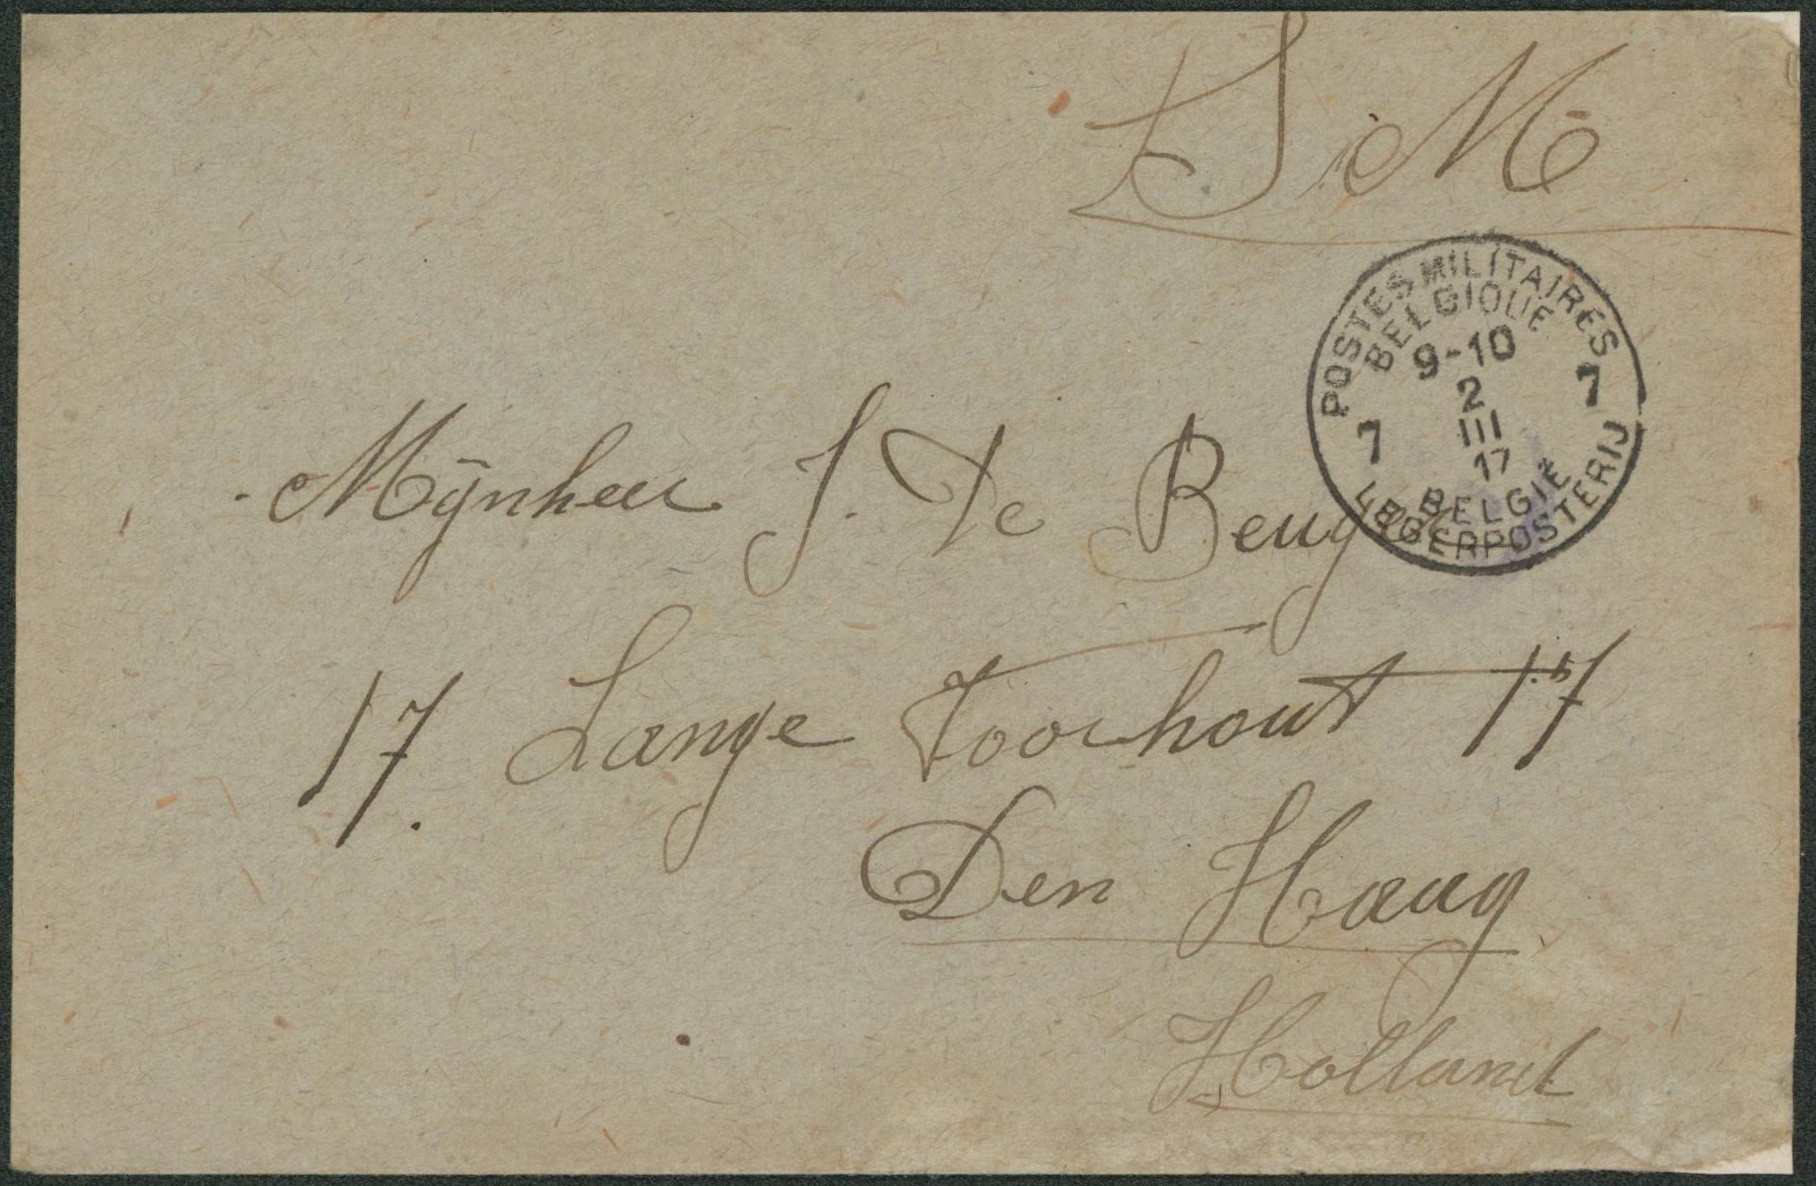 S M
POSTES MILITAIRES
BELGIQUE
9-10
2
III
17
7 7
BELGIË
LEGERPOSTERIJ
Mÿnheer J. De
17 Lange Voorhout 17
Den Haag
Holland